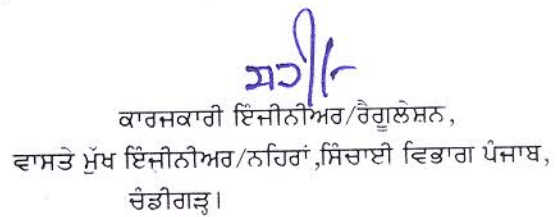 ਸਹੀ/-
ਕਾਰਜਕਾਰੀ ਇੰਜੀਨੀਅਰ/ਰੈਗੂਲੇਸ਼ਨ,
ਵਾਸਤੇ ਮੁੱਖ ਇੰਜੀਨੀਅਰ/ਨਹਿਰਾਂ,ਸਿੰਚਾਈ ਵਿਭਾਗ ਪੰਜਾਬ,
ਚੰਡੀਗੜ੍ਹ।